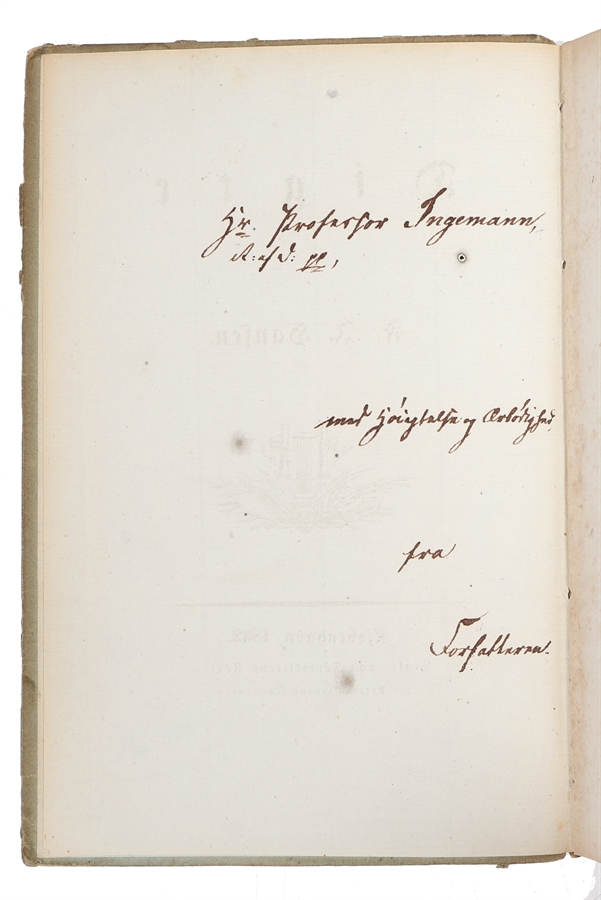 Hr. Professor Ingemann,
R: af D: pp,
med Høiagtelse og Ærbødighed,
fra
Forfatteren.